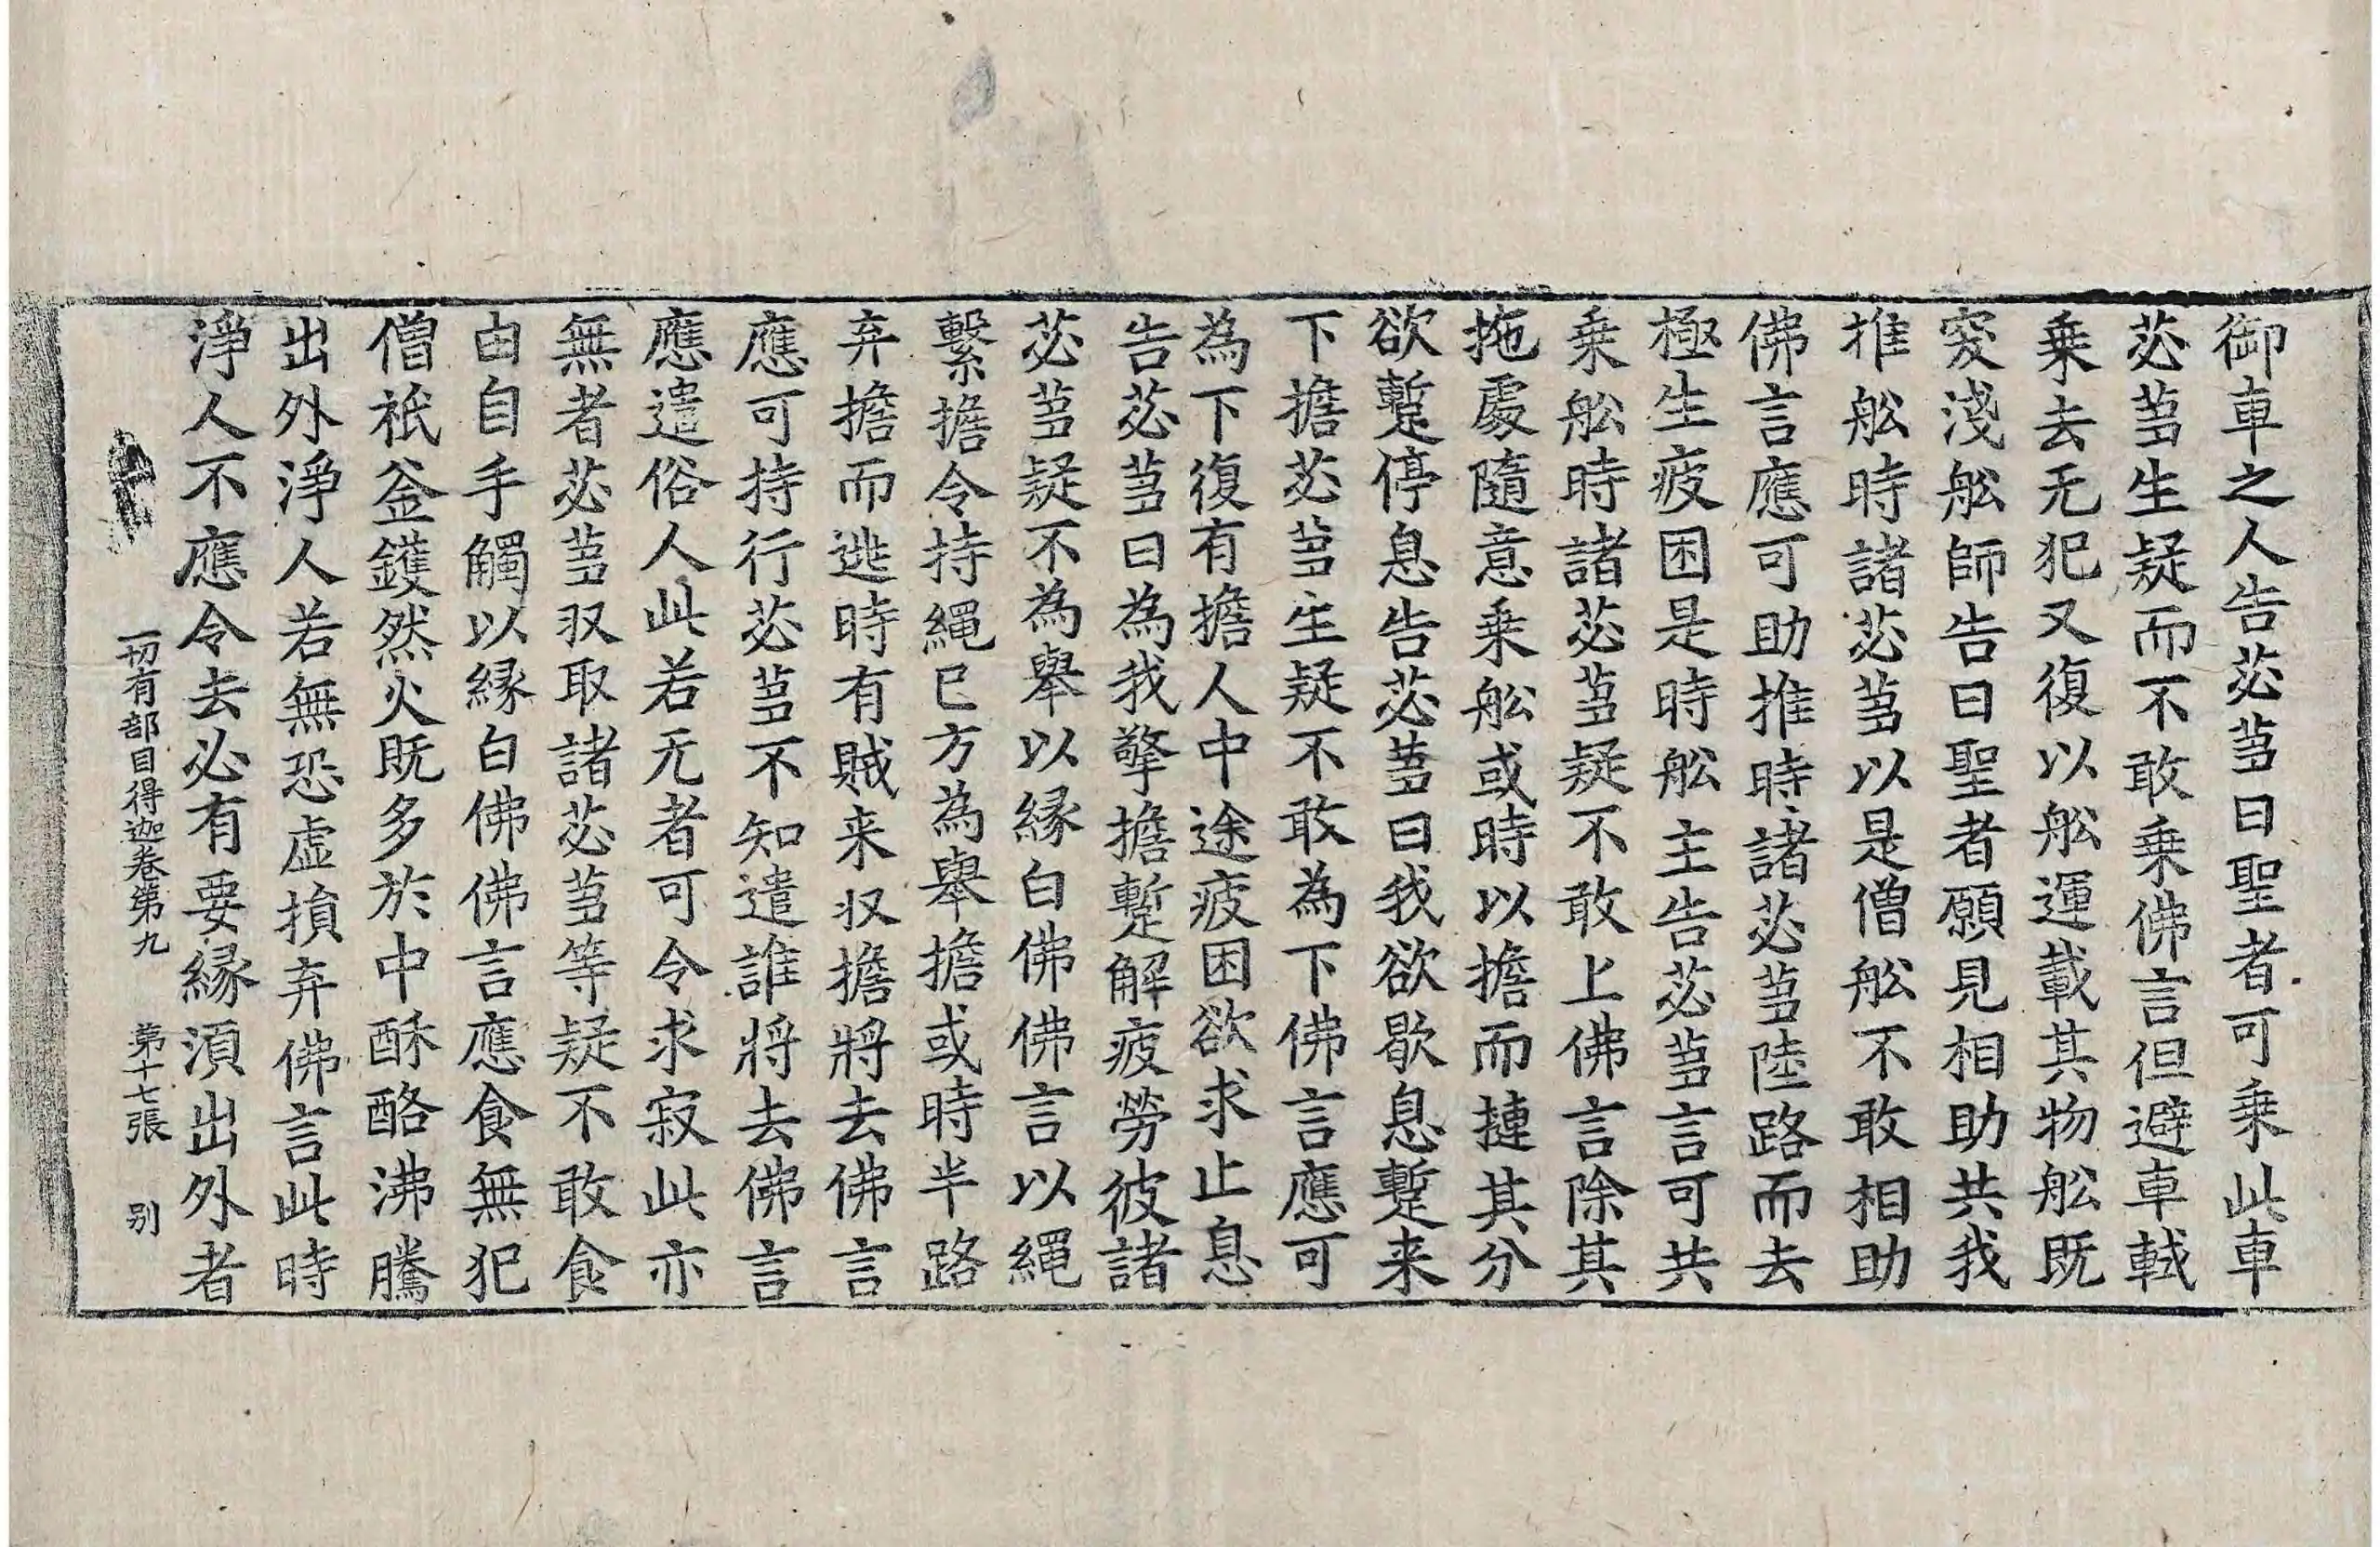 御車之人告苾蒭曰聖者可乗此車
苾蒭生疑而不敢乗佛言但避車軾
乗去无犯又復以舩運載其物舩旣
窔淺舩師告曰聖者願見相助共我
推舩時諸苾蒭以是僧舩不敢相助
佛言應可助推時諸苾蒭陸路而去
極生疲困是時舩主告苾蒭言可共
乗舩時諸苾蒭疑不敢上佛言除其
拖處隨意乗舩或時以擔而摙其分
欲蹔停息告苾蒭曰我欲歇息蹔来
下擔苾蒭生疑不敢為下佛言應可
為下復有擔人中途疲困欲求止息
告苾蒭曰為我擎擔蹔解疲勞彼諸
苾蒭疑不為舉以縁白佛佛言以繩
繫擔令持繩已方為舉擔或時半路
弃擔而逃時有賊来収擔將去佛言
應可持行苾蒭不知遣誰將去佛言
應遣俗人此若无者可令求寂此亦
無者苾蒭収取諸苾蒭等疑不敢食
由自手觸以縁白佛佛言應食無犯
僧祇釜鑊然火旣多於中酥酪沸騰
出外淨人若無恐虛損弃佛言此時
淨人不應令去必有要縁湏出外者
一切有部目得迦卷第九 苐十七張 别